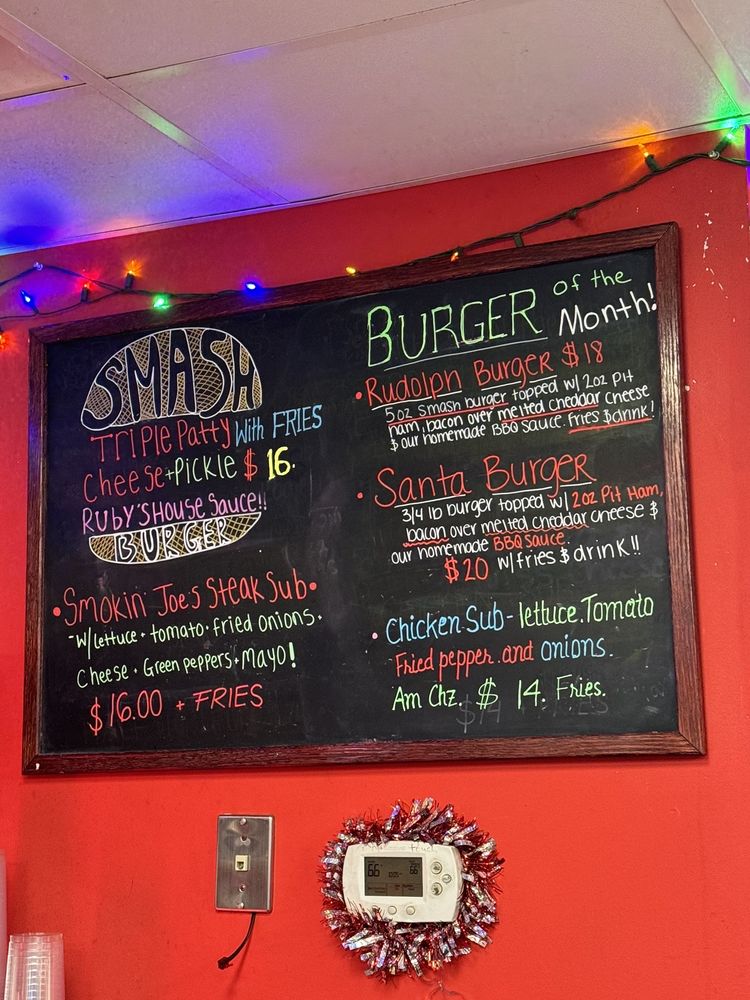 SMASH
Triple Patty With FRIES
Cheese + Pickle $ 16.
Ruby's House Sauce!!
BURGER
• Smokin Joes Steak Sub •
- W/ Lettuce • tomato • fried onions •
Cheese • Green peppers • Mayo!
$16.00 + FRIES
BURGER of the
Month!
• Rudolph Burger $18
5oz Smash burger topped w/ 2oz Pit
ham, bacon over melted cheddar cheese
$ our homemade BBQ sauce. Fries $ drink!
• Santa Burger
3/4 lb burger topped w/ 2oz Pit Ham,
bacon over melted cheddar cheese $
our homemade BBQ sauce.
$20 w/ fries $ drink!!
• Chicken Sub - lettuce. Tomato
Fried pepper. and onions.
Am Chz. $ 14. Fries.
66